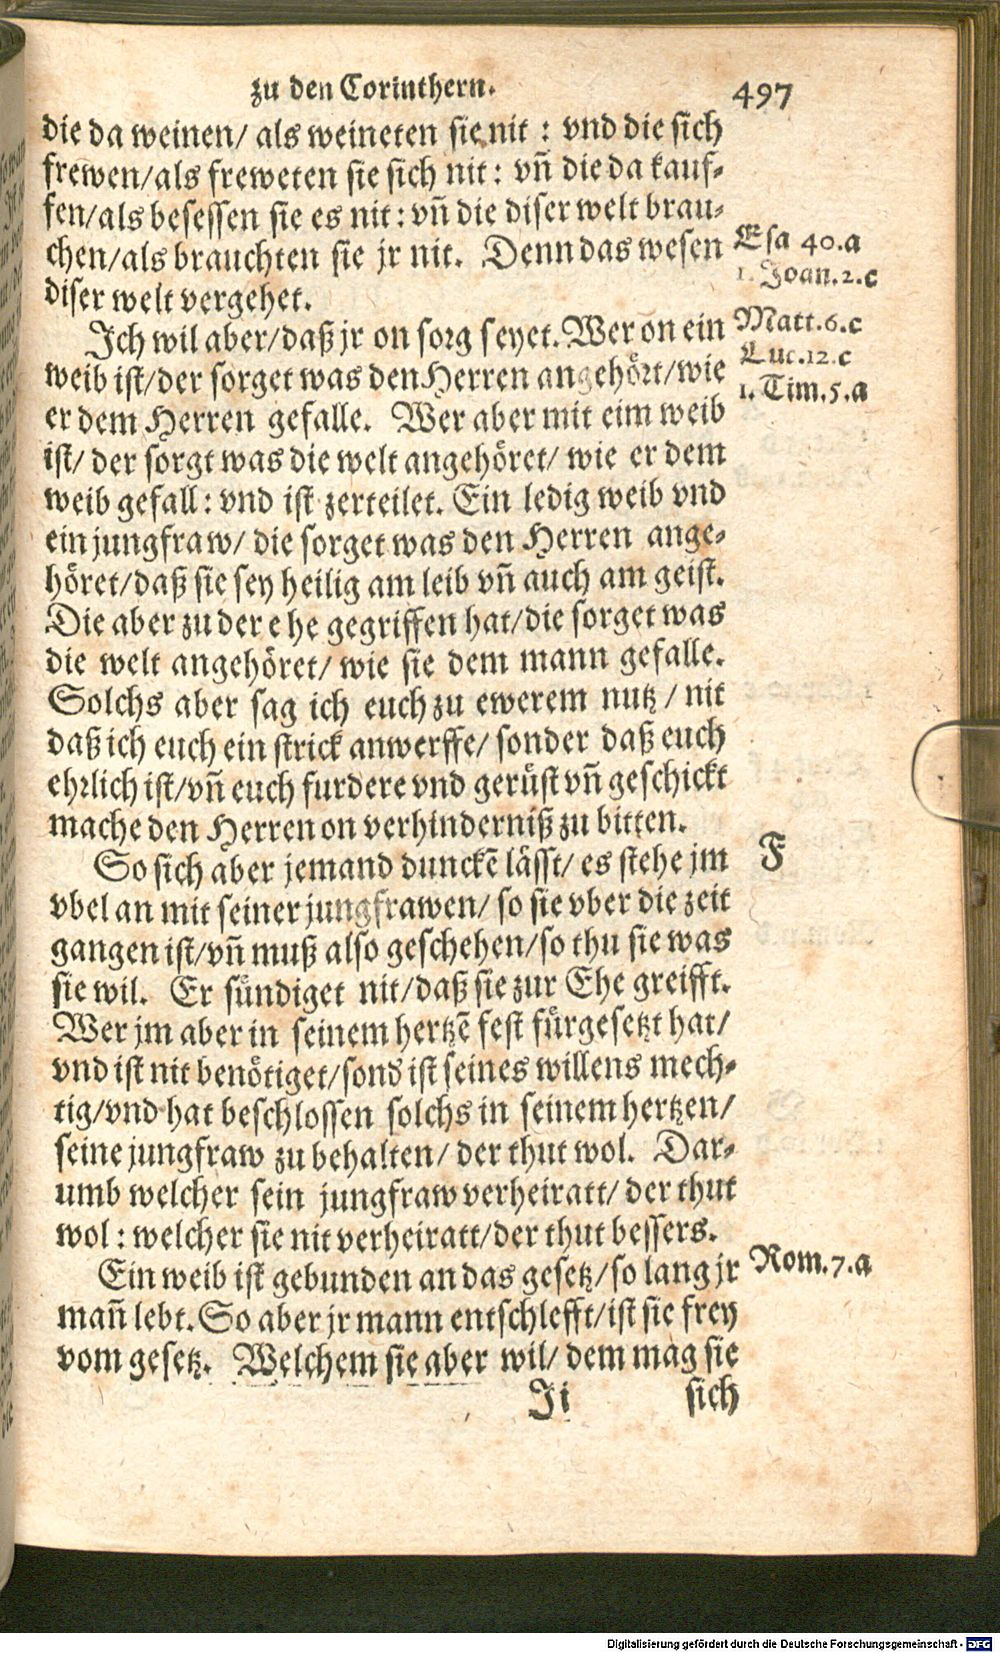 zu den Corinthern. 497
die da weinen/ als weineten sie nit : vnd die sich
frewen/als freweten sie sich nit: vñ die da kauf⸗
fen/als besessen sie es nit: vñ die diser welt brau⸗
chen/als brauchten sie jr nit. Denn das wesen
diser welt vergehet.
Esa 40.a
1. Joan.2.c
Ich wil aber/daß jr on sorg seyet. Wer on ein
weib ist/der sorget was den Herren angehört/wie
er dem Herren gefalle. Wer aber mit eim weib
ist/ der sorgt was die welt angehöret/ wie er dem
weib gefall: vnd ist zerteilet. Ein ledig weib vnd
ein jungfraw/ die sorget was den Herren ange⸗
höret/daß sie sey heilig am leib vñ auch am geist.
Die aber zu der ehe gegriffen hat/die sorget was
die welt angehöret/ wie sie dem mann gefalle.
Solchs aber sag ich euch zu ewerem nutz / nit
daß ich euch ein strick anwerffe/ sonder daß euch
ehrlich ist/vñ euch furdere vnd gerüst vñ geschickt
mache den Herren on verhinderniß zu bitten.
Matt.6.c
Luc.12.c
1. Tim.5.a
So sich aber jemand dunckē lässt/ es stehe jm
vbel an mit seiner jungfrawen/ so sie vber die zeit
gangen ist/vñ muß also geschehen/so thu sie was
sie wil. Er sündiget nit/daß sie zur Ehe greifft.
Wer jm aber in seinem hertzē fest fürgesetzt hat/
vnd ist nit benötiget/sond ist seines willens mech⸗
tig/vnd hat beschlossen solchs in seinem hertzen/
seine jungfraw zu behalten/ der thut wol. Dar⸗
umb welcher sein jungfraw verheiratt/ der thut
wol : welcher sie nit verheiratt/der thut bessers.
F
Ein weib ist gebunden an das gesetz/so lang jr
mañ lebt. So aber jr mann entschlefft/ist sie frey
vom gesetz. Welchem sie aber wil/ dem mag sie
Rom.7.a
Ji sich
Digitalisierung gefördert durch die Deutsche Forschungsgemeinschaft - DFG